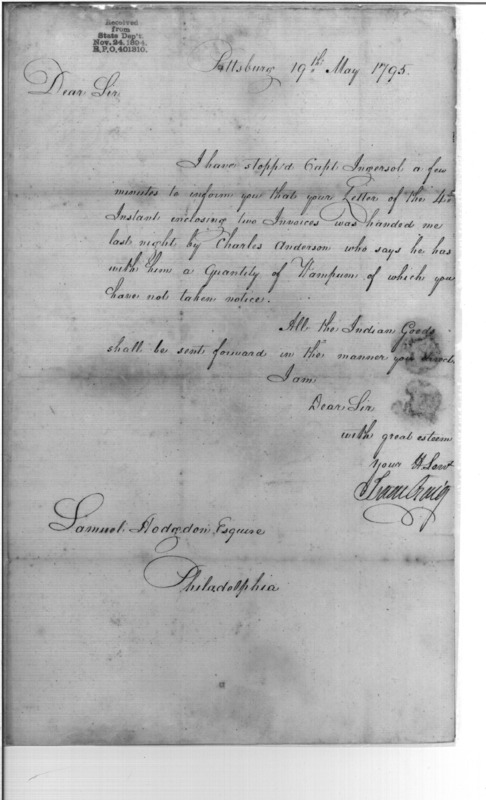 Received
from
State Dep't.
Nov. 24, 1894.
R.P.O. 401910.
Pittsburg 19th May 1795.
Dear Sir
I have stopp'd Capt Ingersol a few
minutes to inform you that your Letter of the 4th
Instant enclosing two Invoices was handed me
last night by Charles Anderson who says he has
with them a Quantity of Wampum of which you
have not taken notice.
All the Indian Goods
shall be sent forward in the manner you direct,
I am
Dear Sir
with great esteem
Your H. Servt
Isaac Craig
Samuel Hodgdon, Esquire
Philadelphia